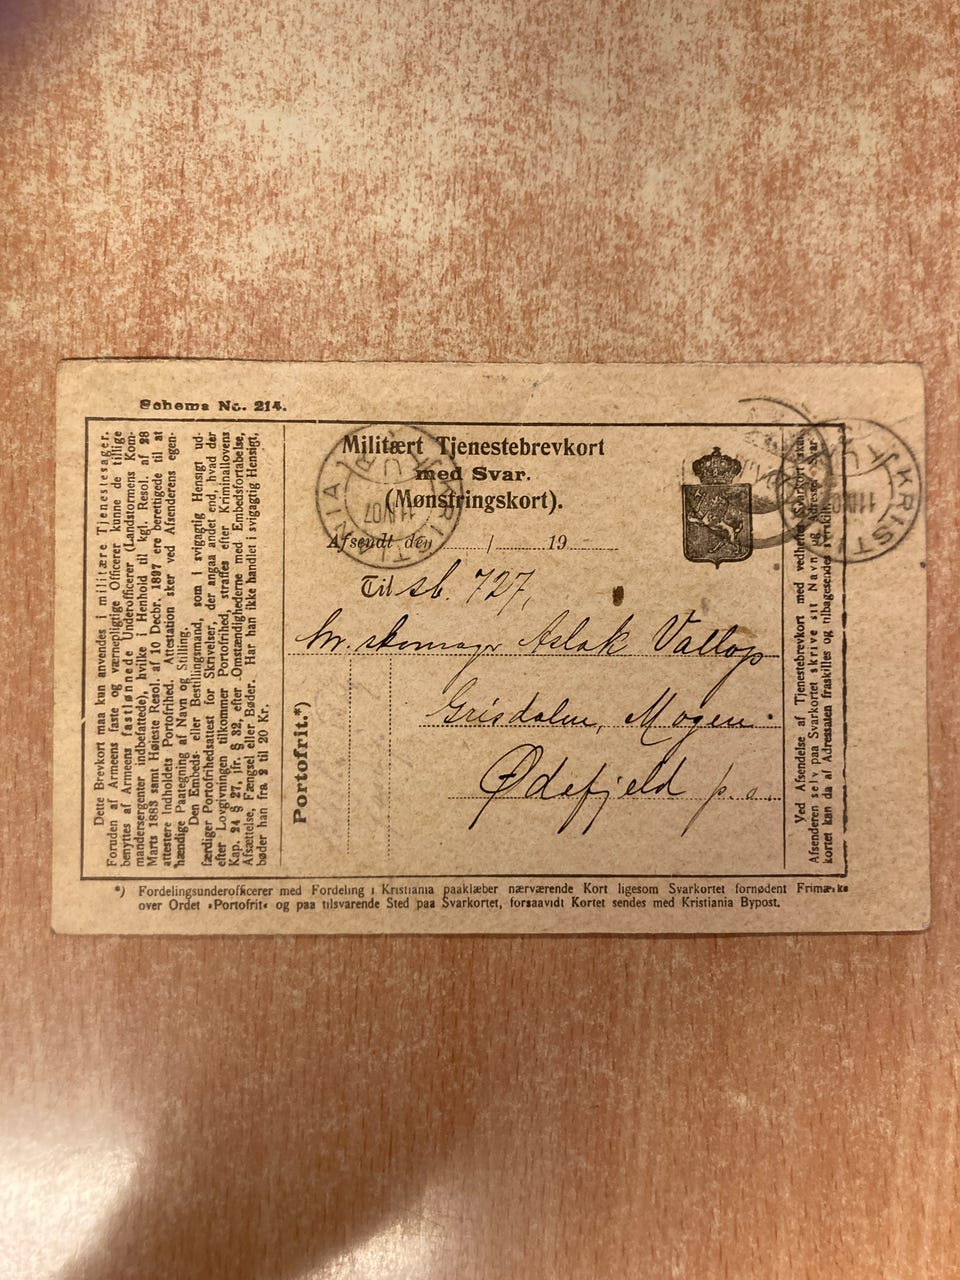 Schema No. 214.
Dette Brevkort maa kun anvendes i militære Tjenestesager.
Foruden af Armeens faste og værnepligtige Officerer kunne de tillige
benyttes af Armeens fastlønnede Underofficerer (Landstormens Kom-
mandersergenter indbefattede), hvilke i Henhold til kgl. Resol. af 28
Marts 1883 samt Høieste Resol. af 10 Decbr. 1897 ere berettigede til at
attestere Indholdets Portofrihed. Attestation sker ved Afsenderens egen-
hændige Paategning af Navn og Stilling.
Den Embeds- eller Bestillingsmand, som i svigagtig Hensigt ud-
færdiger Portofrihedsattest for Skrivelser, der angaa andet end, hvad der
efter Lovgivningen tilkommer Portofrihed, straffes efter Kriminallovens
Kap. 24 § 27, jfr. § 32, efter Omstændighederne med Embedsfortabelse,
Afsættelse, Fængsel eller Bøder. Har han ikke handlet i svigagtig Hensigt,
bøder han fra 2 til 20 Kr.
Militært Tjenestebrevkort
med Svar.
(Mønstringskort).
Afsendt den / 19
Til sb. 727,
hr. skomager Aslak Vallop
Grisdalen, Mogen.
Ødefjeld p. a.
Portofrit.*)
KRISTIANIA
11 IV 07
KRISTI
11 IV 07
Ved Afsendelse af Tjenestebrevkort med vedhæftet Svarkort skal
Afsenderen selv paa Svarkortet skrive sit Navn og Adresse. Svar-
kortet kan da af Adressaten fraskilles og tilbagesendes
*) Fordelingsunderofficerer med Fordeling i Kristiania paaklæber nærværende Kort ligesom Svarkortet fornødent Frimærke
over Ordet »Portofrit« og paa tilsvarende Sted paa Svarkortet, forsaavidt Kortet sendes med Kristiania Bypost.